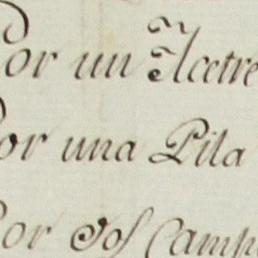 Por un Acetre
Por una Pila
Por dos Camp